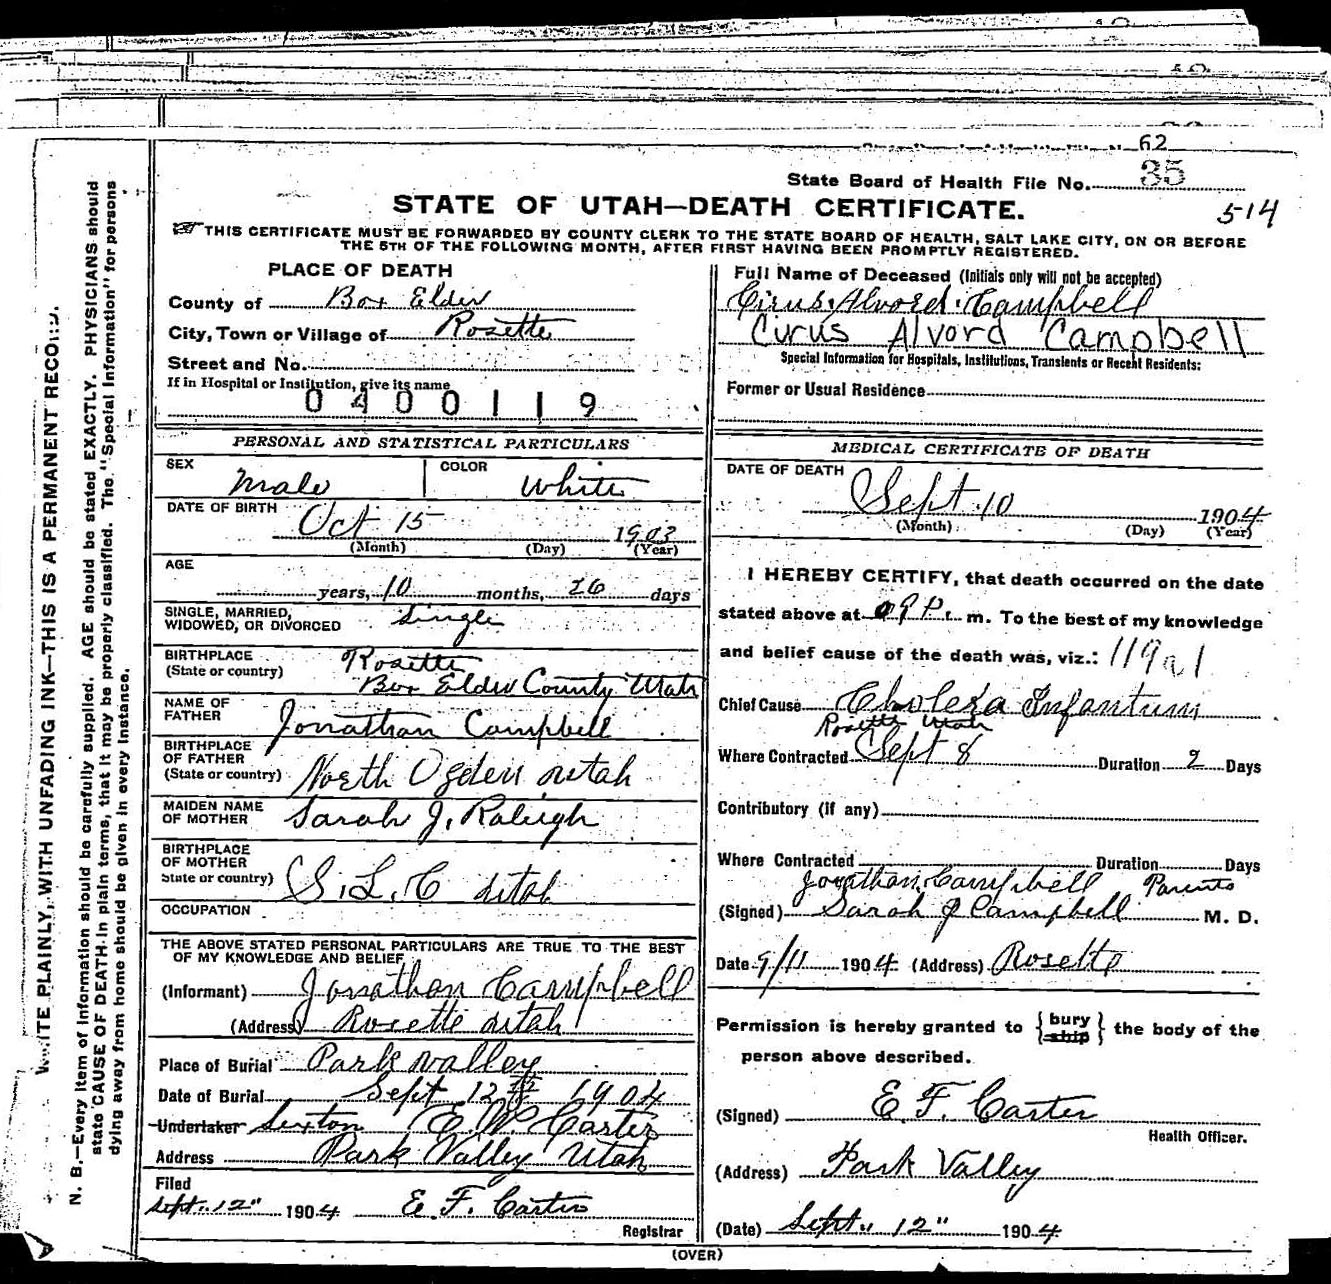 62
State Board of Health File No. 35
STATE OF UTAH—DEATH CERTIFICATE.
514
THIS CERTIFICATE MUST BE FORWARDED BY COUNTY CLERK TO THE STATE BOARD OF HEALTH, SALT LAKE CITY, ON OR BEFORE
THE 5TH OF THE FOLLOWING MONTH, AFTER FIRST HAVING BEEN PROMPTLY REGISTERED.
WRITE PLAINLY, WITH UNFADING INK—THIS IS A PERMANENT RECORD.
N. B.—Every item of information should be carefully supplied. AGE should be stated EXACTLY. PHYSICIANS should
state CAUSE OF DEATH in plain terms, that it may be properly classified. The "Special Information" for persons
dying away from home should be given in every instance.
PLACE OF DEATH
County of Box Elder
City, Town or Village of Rosette
Street and No.
If in Hospital or Institution, give its name
0400119
PERSONAL AND STATISTICAL PARTICULARS
SEX Male COLOR White
DATE OF BIRTH Oct 15 1903
(Month) (Day) (Year)
AGE
years, 10 months, 26 days
SINGLE, MARRIED,
WIDOWED, OR DIVORCED Single
BIRTHPLACE Rosette
(State or country) Box Elder County Utah
NAME OF
FATHER Jonathan Campbell
BIRTHPLACE
OF FATHER
(State or country) North Ogden Utah
MAIDEN NAME
OF MOTHER Sarah J. Raleigh
BIRTHPLACE
OF MOTHER
State or country) S. L. C Utah
OCCUPATION
THE ABOVE STATED PERSONAL PARTICULARS ARE TRUE TO THE BEST
OF MY KNOWLEDGE AND BELIEF
(Informant) Jonathan Campbell
(Address) Rosette Utah
Place of Burial Park Valley
Date of Burial Sept 12th 1904
Undertaker Sexton E. W. Carter
Address Park Valley Utah
Filed
Sept. 12" 1904 E. F. Carter
Registrar
Full Name of Deceased (Initials only will not be accepted)
Cirus Alvord Campbell
Cyrus Alvord Campbell
Special Information for Hospitals, Institutions, Transients or Recent Residents:
Former or Usual Residence
MEDICAL CERTIFICATE OF DEATH
DATE OF DEATH Sept. 10 1904
(Month) (Day) (Year)
I HEREBY CERTIFY, that death occurred on the date
stated above at 9 P. m. To the best of my knowledge
and belief cause of the death was, viz.: 119a1
Chief Cause Cholera Infantum
Rosette Utah
Where Contracted Sept 8 Duration 2 Days
Contributory (if any)
Where Contracted Duration Days
Jonathan Campbell Parents
(Signed) Sarah J Campbell M. D.
Date 9/11 1904 (Address) Rosette
Permission is hereby granted to {bury ship} the body of the
person above described.
(Signed) E. F. Carter
Health Officer.
(Address) Park Valley
(Date) Sept. 12" 1904
(OVER)